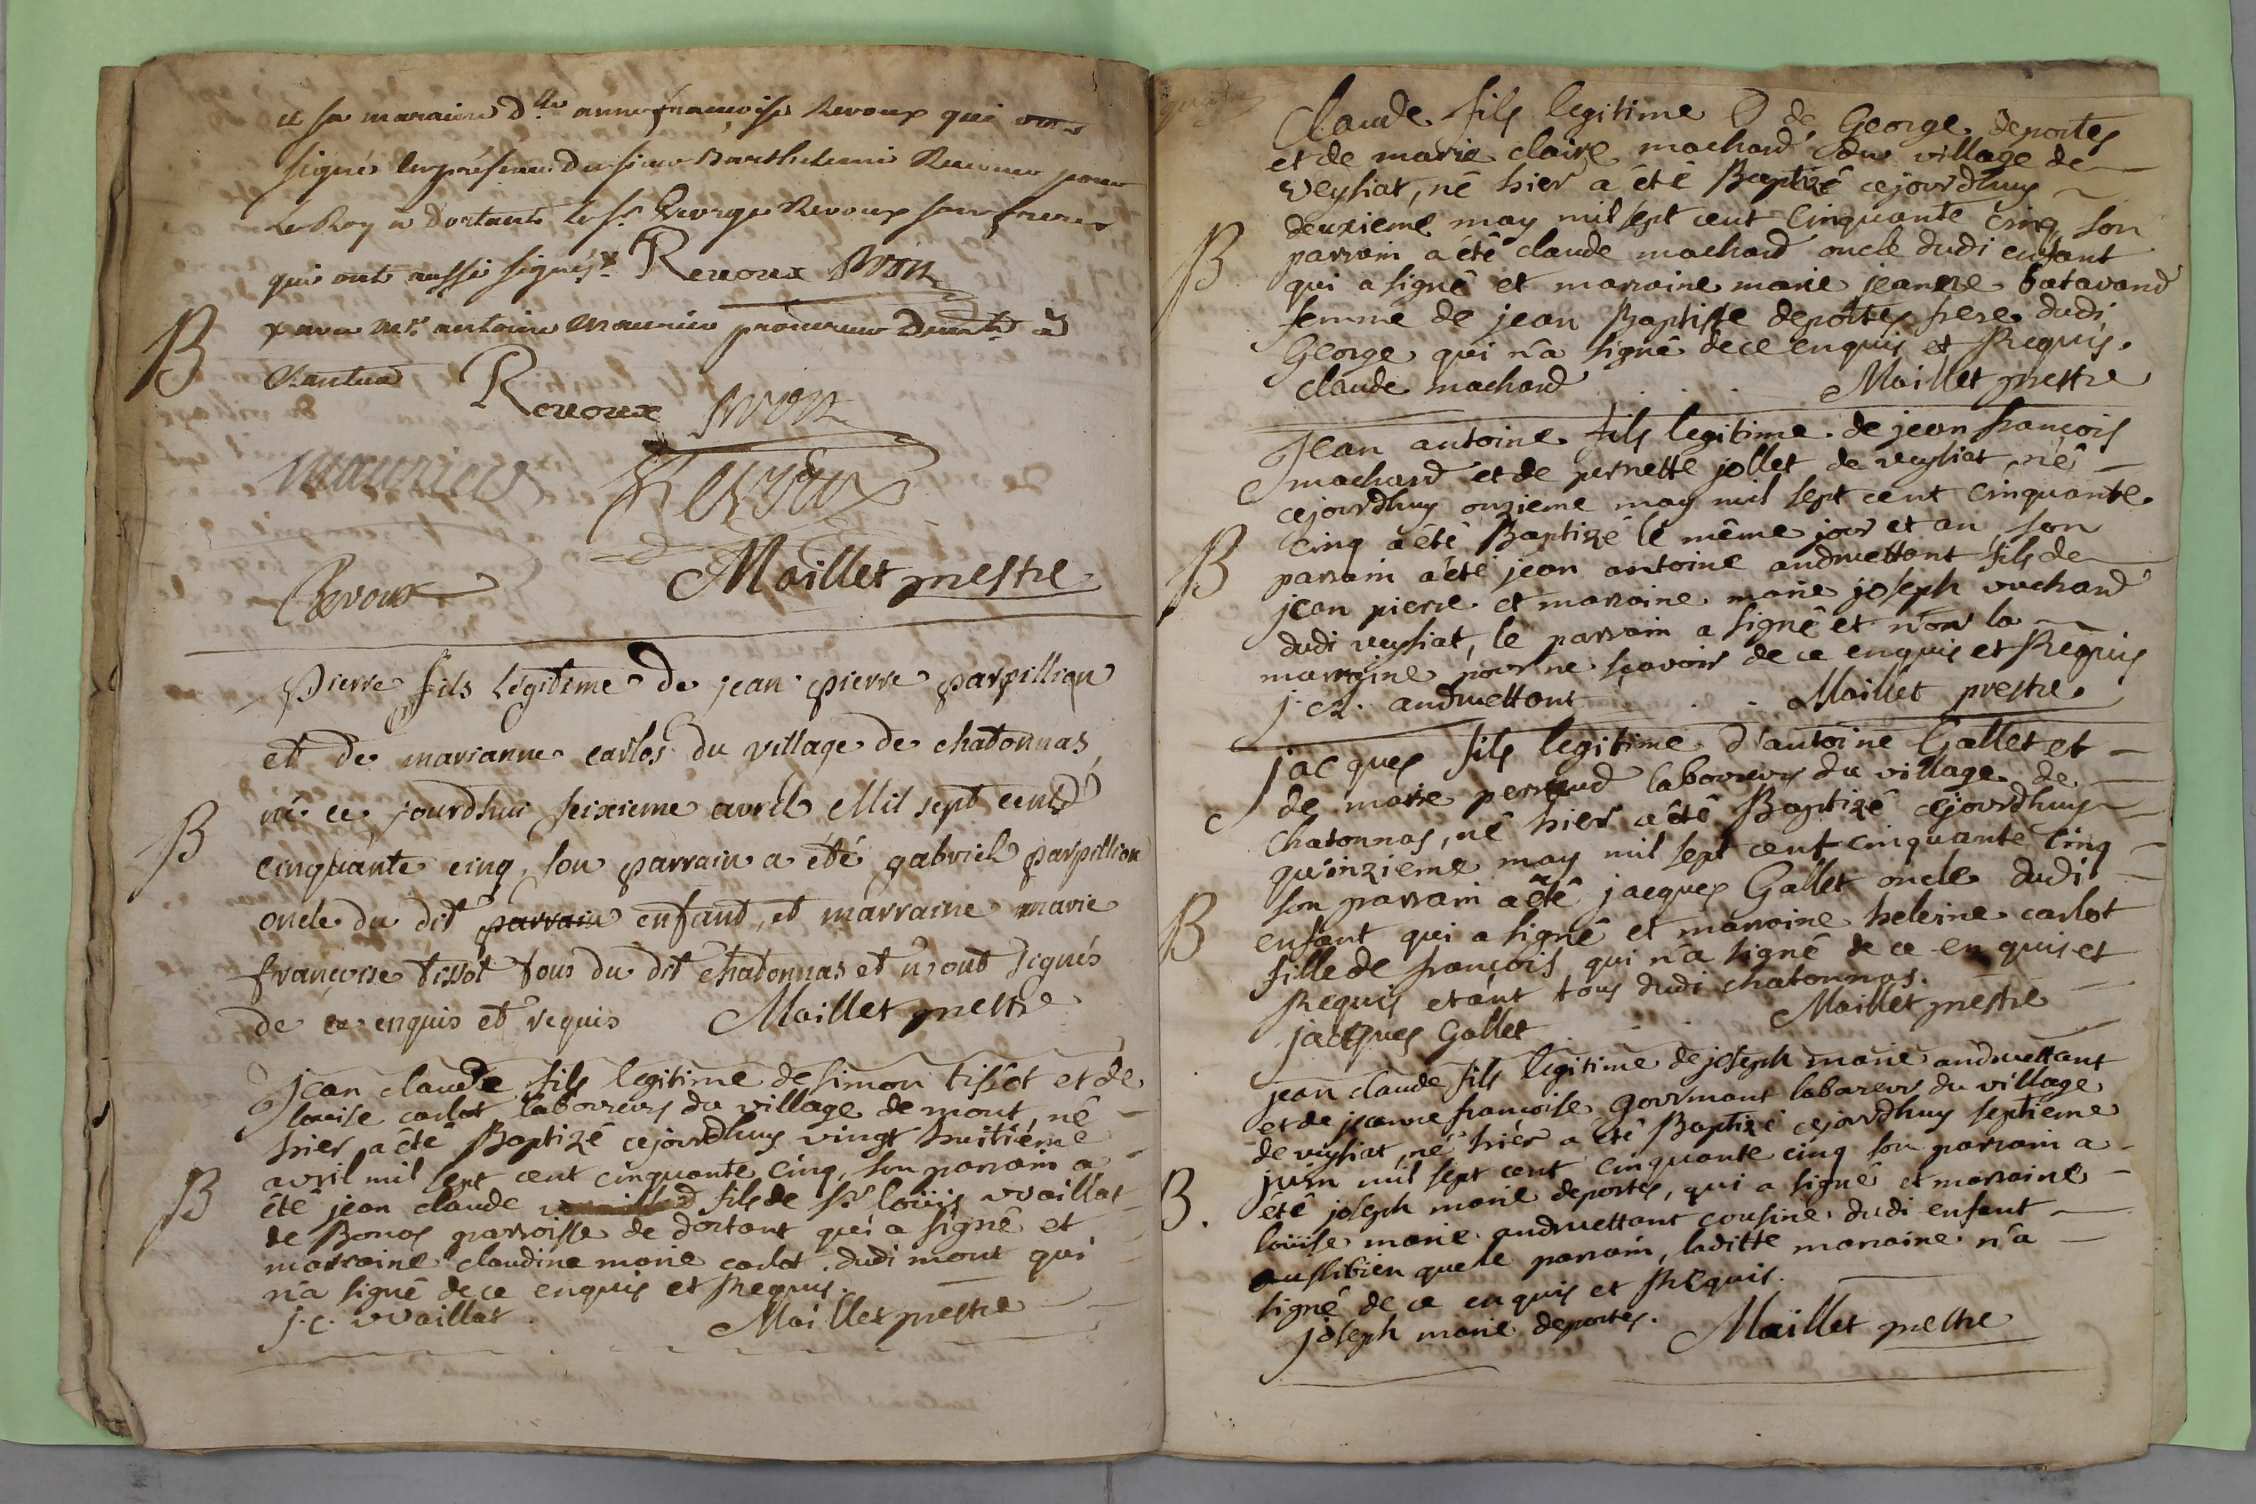 et sa maraine d.lle anne françoise Revoux qui
signés en présence du sieur Barthelemi pour
Le Roy à Dortant le s.r George Revoux son frere
qui ont aussi signés x Revoux
x avec m.re antoine Maurier procureur à
Nantua Revoux
B
Maurier Revoux
Revoux Maillet prestre
pierre fils légitime de jean pierre parpillion
et de marianne carlos du village de chatonnas,
né ce jourdhui seixieme avril Mil sept cent
B
cinquante cinq, son parrain a été gabriel parpillion
oncle du dit parrain enfant, et marraine marie
françoise tissot tous du dit chatonnas et n'ont signés
de ce enquis et requis Maillet prestre
Jean claude fils legitime de simon tissot et de
louise carlot laboureurs du village de mont, né
hier a été Baptizé cejourdhuy vingt huitiéme
avril mil sept cent cinquante cinq, son parrain a
B
été jean claude fils de s.r loüis vvaillat
de Bonas parroisse de dortant qui a signé et
marraine claudine marie carlot dudi mont qui
n'a signé de ce enquis et Requis.
j. c. vvaillat Maillet prestre
Claude fils legitime de George deportes
et de marie claire machard du village de
veysiat, né hier a été Baptizé cejourdhuy
deuxieme may mil sept cent Cinquante Cinq son
B
parrain a été claude machard oncle dudi enfant
qui a signé et marraine marie jeanne batavand
femme de jean Baptiste deportes frere dudi
George qui n'a signé de ce enquis et Requis.
claude machard Maillet prestre
Jean antoine fils legitime de jean françois
machard et de pernette jollet de veysiat, né
cejourdhuy onzieme may mil sept cent cinquante
cinq a été Baptizé le même jour et an, son
B
parrain a été jean antoine andruettant fils de
jean pierre et marraine marie joseph vuchard
dudi veysiat, le parrain a signé et non la
marraine pour ne sçavoir de ce enquis et Requis
j. a. andruettant Maillet prestre.
jacques fils legitime d'antoine Gallet et
de marie perraud laboureurs du village de
chatonnas, né hier a été Baptizé cejourdhuy
quinzieme may mil sept cent cinquante Cinq
son parrain a été jacques Gallet oncle dudi
B
enfant qui a signé et marraine heleine carlot
fille de françois qui n'a signé de ce enquis et
Requis etant tous dudi chatonnas.
jacques Gallet Maillet prestre
jean claude fils legitime de joseph marie andruettant
et de jeanne françoise gourmant laboureurs du village
de veysiat, né hier a été Baptizé cejourdhuy septieme
juin mil sept cent cinquante cinq son parrain a
B.
été joseph marie deportes, qui a signé et marraine
loüise marie andruettant cousine dudi enfant
aussibien que le parrain, laditte marraine n'a
signé de ce enquis et Requis.
joseph marie deportes. Maillet prestre